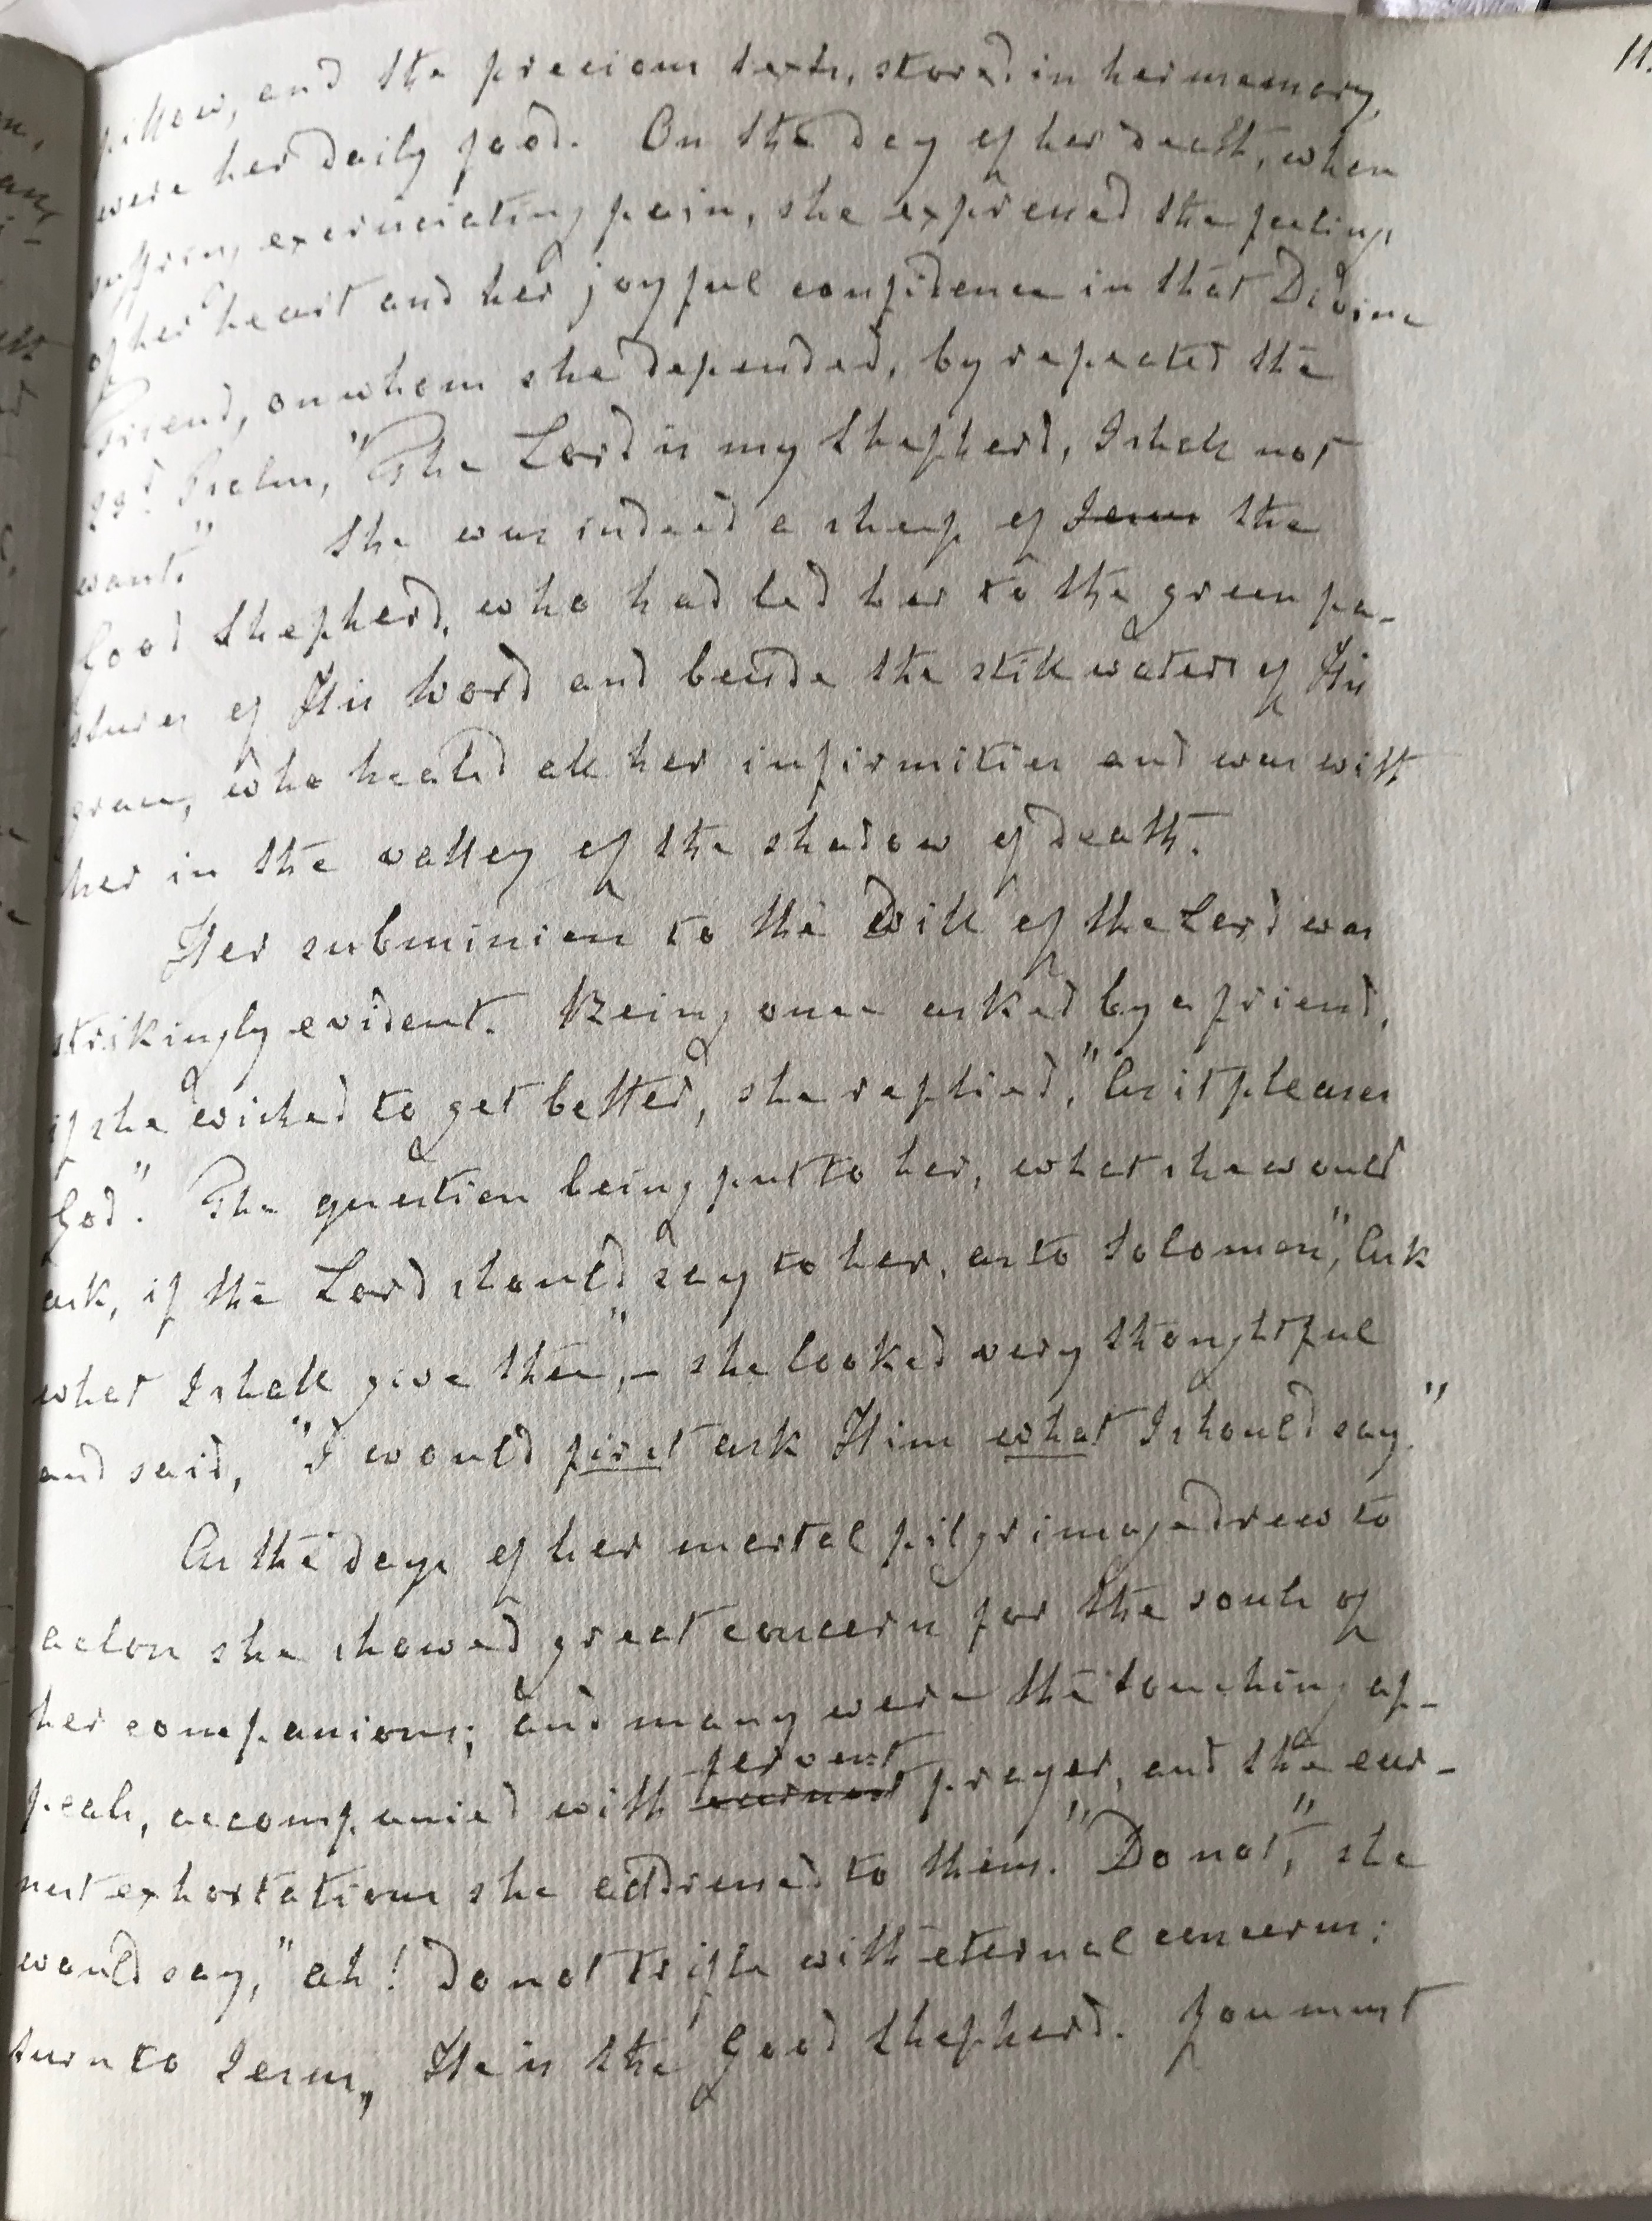 11.
pillow, and the precious texts, stored in her memory,
were her daily food. On the day of her death, when
suffering excruciating pain, she expressed the feelings
of her heart and her joyful confidence in that Divine
Friend, on whom she depended, by repeated the
23d. Psalm, "The Lord is my Shepherd, I shall not
want." She was indeed a sheep of Jesus the
Good Shepherd, who had led her to the green pa-
stures of His Word and beside the still waters of His
grace, who healed all her infirmities and was with
her in the valley of the shadow of death.
Her submission to the Will of the Lord was
strikingly evident. Being once asked by a friend,
if she wished to get better, she replied, "As it pleases
God". The question being put to her, what she would
ask, if the Lord should say to her, as to Solomon, "Ask
what I shall give thee", – she looked very thoughtful
and said, "I would first ask Him what I should say."
As the days of her mortal pilgrimage drew to
a close she showed great concern for the souls of
her companions; and many were the touching ap-
fervent
peals, accompanied with earnest prayer, and the ear-
nest exhortations she addressed to them. "Do not", she
would say, "ah! Do not trifle with eternal concerns;
turn to Jesus, He is the Good Shepherd. You must